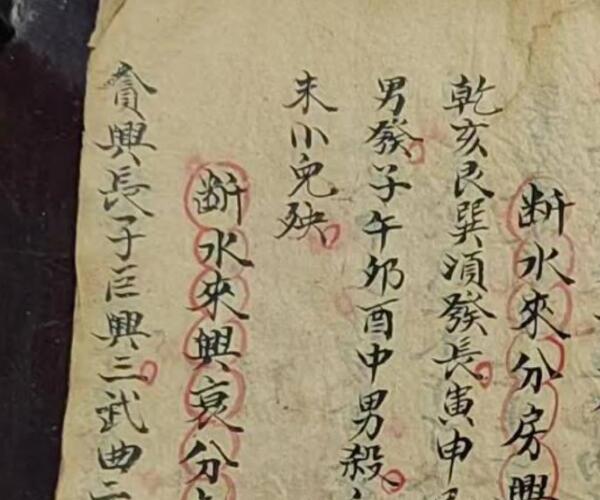 斷水來分房興
乾亥艮巽湏發長寅申
男發子午夘酉中男殺
未小兒殃
斷水來興衰分
貪興長子巨興三武曲二